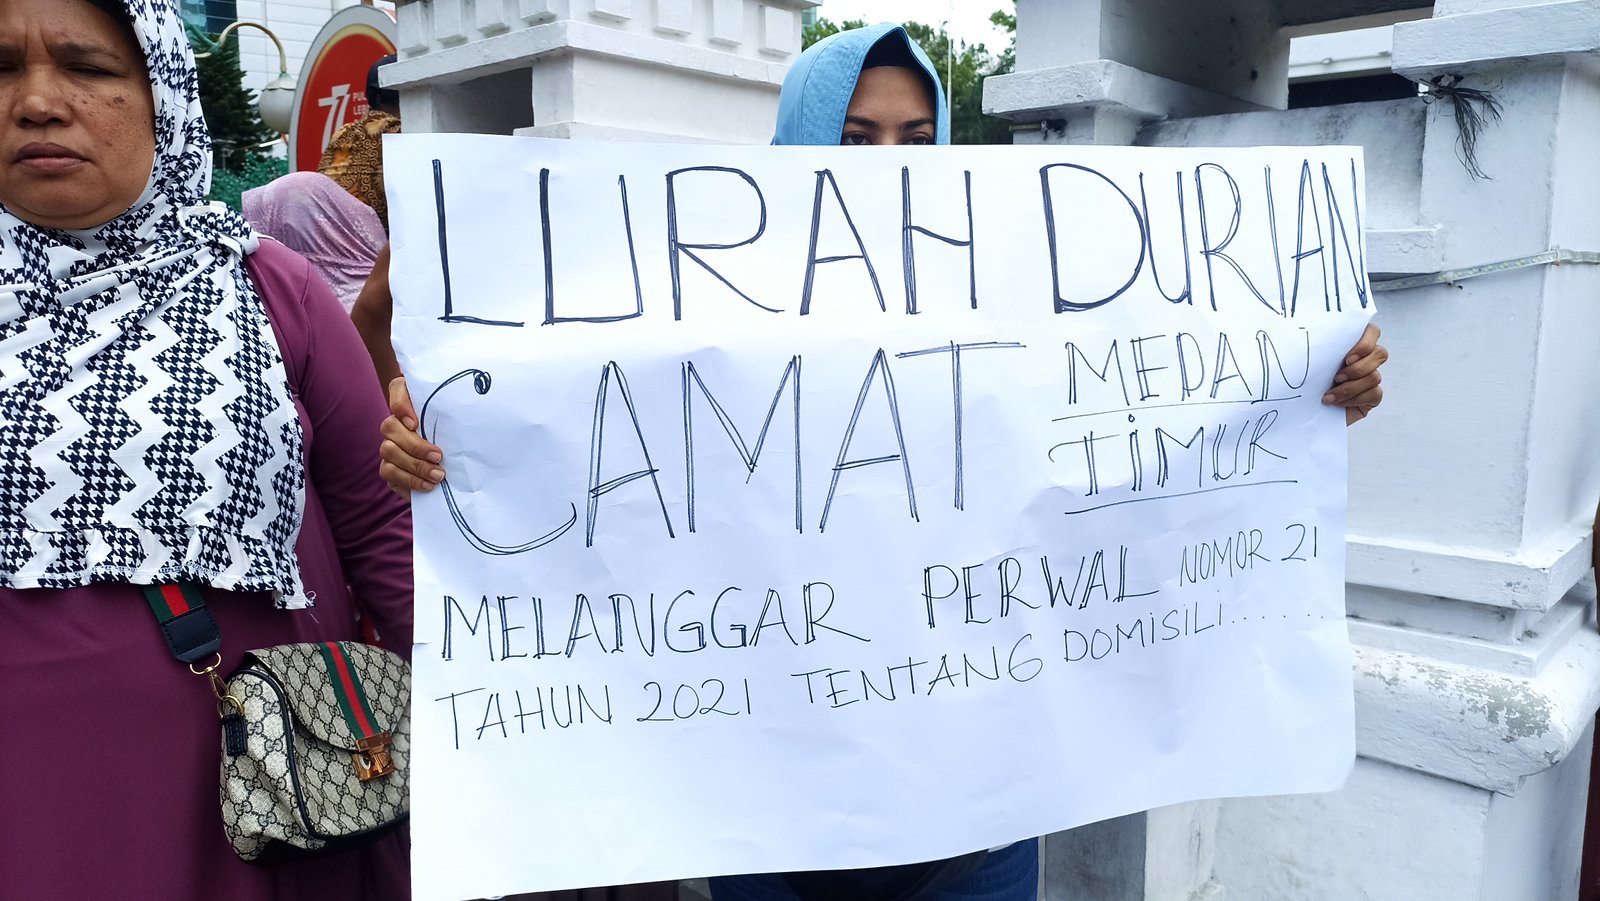 LURAH DURIAN
CAMAT MEDAN
TIMUR
MELANGGAR PERWAL NOMOR 21
TAHUN 2021 TENTANG DOMISILI.......
77